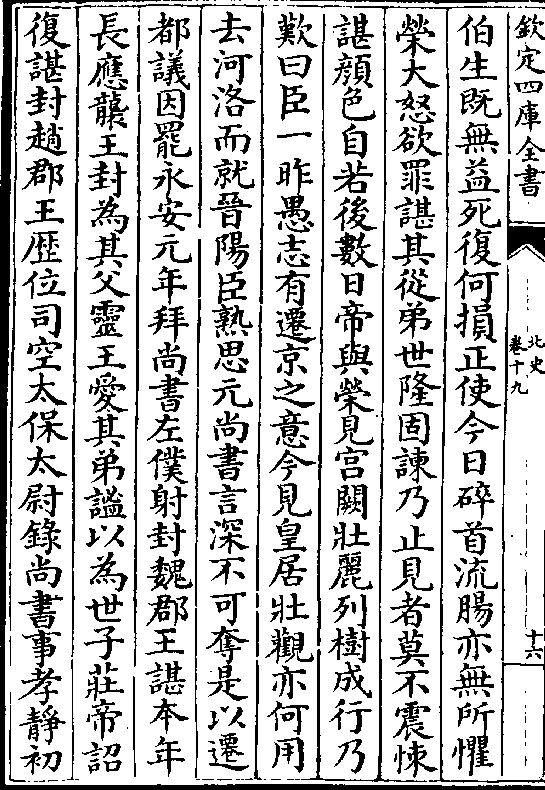 欽定四庫全書
北史
卷十九
十六
伯生既無益死復何損正使今日碎首流腸亦無所懼
榮大怒欲罪諶其從弟世隆固諫乃止見者莫不震悚
諶顔色自若後數日帝與榮見宫闕壯麗列樹成行乃
歎曰臣一昨愚志有遷京之意今見皇居壯觀亦何用
去河洛而就晉陽臣熟思元尚書言深不可奪是以遷
都議因罷永安元年拜尚書左僕射封魏郡王諶本年
長應襲王封為其父靈王愛其弟謐以為世子莊帝詔
復諶封趙郡王歴位司空太保太尉錄尚書事孝靜初